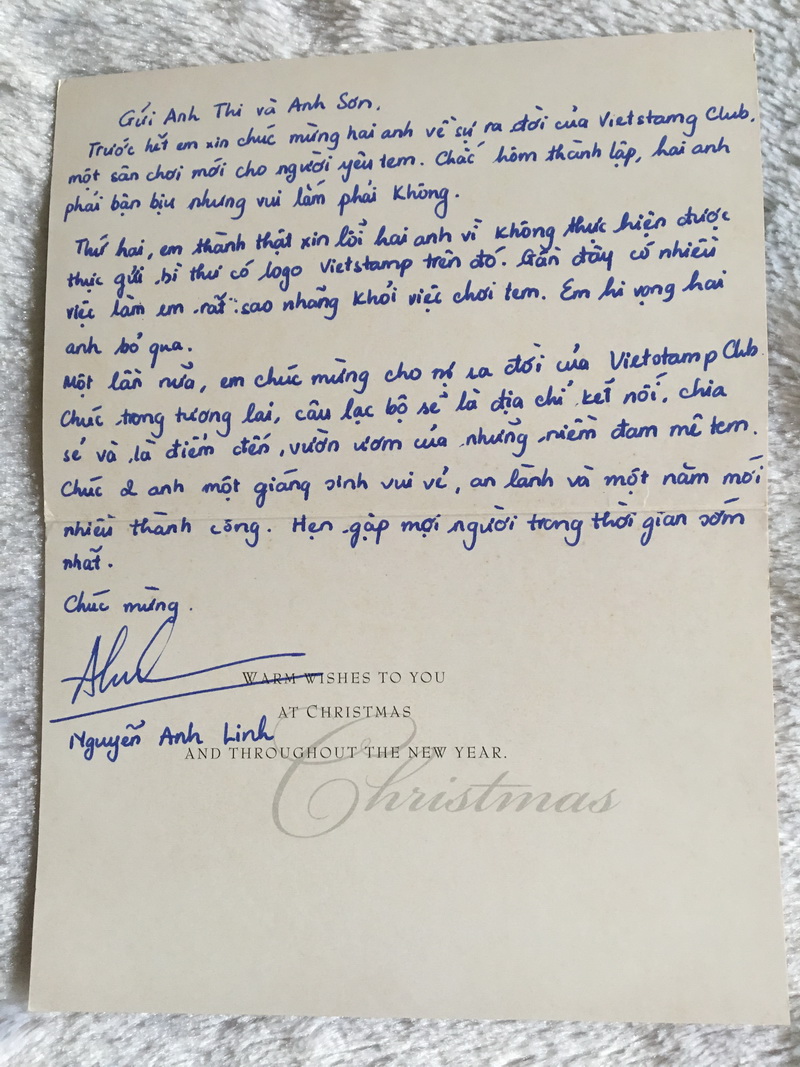 Gửi Anh Thi và Anh Sơn.
Trước hết em xin chúc mừng hai anh về sự ra đời của Vietstamg Club,
một sân chơi mới cho người yêu tem. Chắc hôm thành lập, hai anh
phải bận bịu nhưng vui lắm phải không.
Thứ hai, em thành thật xin lỗi hai anh vì không thực hiện được
thực gửi bì thư có logo Vietstamp trên đó. Gần đây có nhiều
việc làm em rất sao nhãng khỏi việc chơi tem. Em hi vọng hai
anh bỏ qua.
Một lần nữa, em chúc mừng cho sự ra đời của Vietstamp Club
Chúc trong tương lai, câu lạc bộ sẽ là địa chỉ kết nối, chia
sẻ và là điểm đến, vườn ươm của những niềm đam mê tem.
Chúc 2 anh một giáng sinh vui vẻ, an lành và một năm mới
nhiều thành công. Hẹn gặp mọi người trong thời gian sớm
nhất.
Chúc mừng.
WARM WISHES TO YOU
AT CHRISTMAS
Nguyễn Anh Linh
AND THROUGHOUT THE NEW YEAR.
Christmas